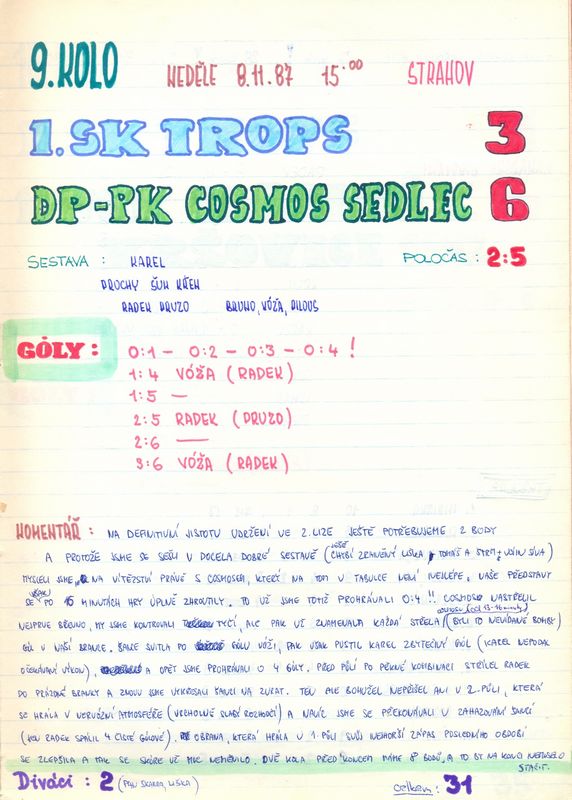 9. KOLO NEDĚLE 8.11.87 15.00 STRAHOV
1. SK TROPS 3
DP-PK COSMOS SEDLEC 6
SESTAVA : KAREL POLOČAS : 2:5
PROCHY ŠUM KŘEN
RADEK PRUZO BRUNO, VÓŽA, PILOUS
GÓLY : 0:1 - 0:2 - 0:3 - 0:4 !
1:4 VÓŽA (RADEK)
1:5 —
2:5 RADEK (PRUZO)
2:6 —
3:6 VÓŽA (RADEK)
KOMENTÁŘ : NA DEFINITIVNÍ JISTOTU UDRŽENÍ VE 2. LIZE JEŠTĚ POTŘEBUJEME 2 BODY
A PROTOŽE JSME SE SEŠLI V DOCELA DOBRÉ SESTAVĚ (CHYBÍ ZRANĚNÝ LIŠKA, TOMÁŠ A
MYSLELI JSME NA VÍTĚZSTVÍ PRÁVĚ S COSMOSEM, KTERÝ NA TOM V TABULCE NENÍ NEJLÉPE. NAŠE PŘEDSTAVY
SE VŠAK PO 15 MINUTÁCH HRY ÚPLNĚ ZHROUTILY. TO UŽ JSME TOTIŽ PROHRÁVALI 0:4 !! COSMOS NASTŘELIL
NEJPRVE BŘEVNO, MY JSME KONTROVALI TYČÍ, ALE PAK UŽ ZNAMENALA KAŽDÁ STŘELA (BYLI TO NEVÍDANÉ BOMBY)
GÓL V NAŠÍ BRANCE. ŠANCE SVITLA PO GÓLU VÓŽI, PAK VŠAK PUSTIL KAREL ZBYTEČNÝ GÓL (KAREL NEPODAL
OČEKÁVANÝ VÝKON), A OPĚT JSME PROHRÁVALI O 4 GÓLY. PŘED PŮLÍ PO PĚKNÉ KOMBINACI STŘÍLEL RADEK
DO PRÁZDNÉ BRANKY A ZNOVU JSME VYKŘESALI ŠANCI NA ZVRAT. TEN ALE BOHUŽEL NEPŘIŠEL ANI V 2. PŮLI, KTERÁ
SE HRÁLA V NERVÓZNÍ ATMOSFÉŘE (VRCHOLNĚ SLABÝ ROZHODČÍ) A NAVÍC JSME SE PŘEKONÁVALI V ZAHAZOVÁNÍ ŠANCÍ
(JEN RADEK SPÁLIL 4 ČISTÉ GÓLOVÉ). OBRANA, KTERÁ HRÁLA V 1. PŮLI SVŮJ NEJHORŠÍ ZÁPAS POSLEDNÍHO OBDOBÍ
SE ZLEPŠILA A TAK SE SKÓRE UŽ MOC NEMĚNILO. DVĚ KOLA PŘED KONCEM MÁME 8 BODŮ, A TO BY NA KONCI NEMUSELO
STAČIT.
Diváci : 2 ( SKARDA, LIŠKA) celkem : 31